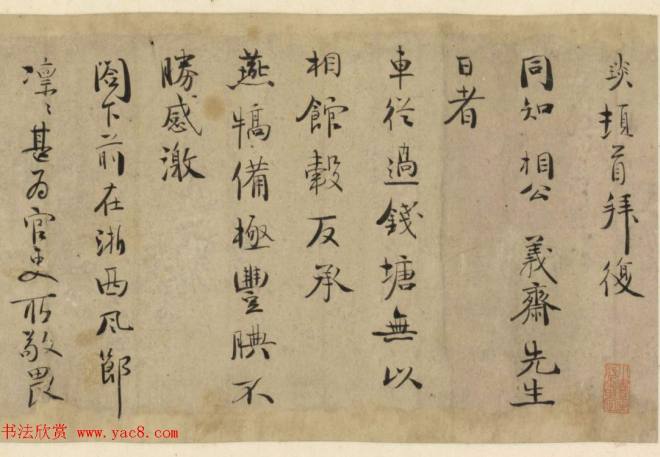 炎頓首拜復
同知相公 義齋先生
日者
車從過錢塘無以
相館穀反承
燕犒備極豐腆不
勝感激
閤下前在浙西風節
凛〻甚為官吏所敬畏
书法欣赏 www.yac8.com